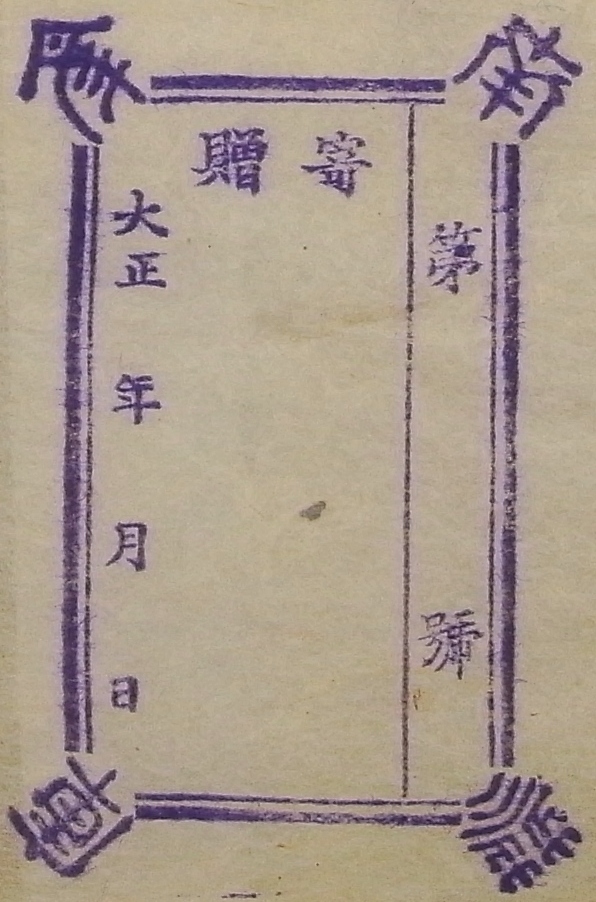 第 號
寄贈
大正 年 月 日